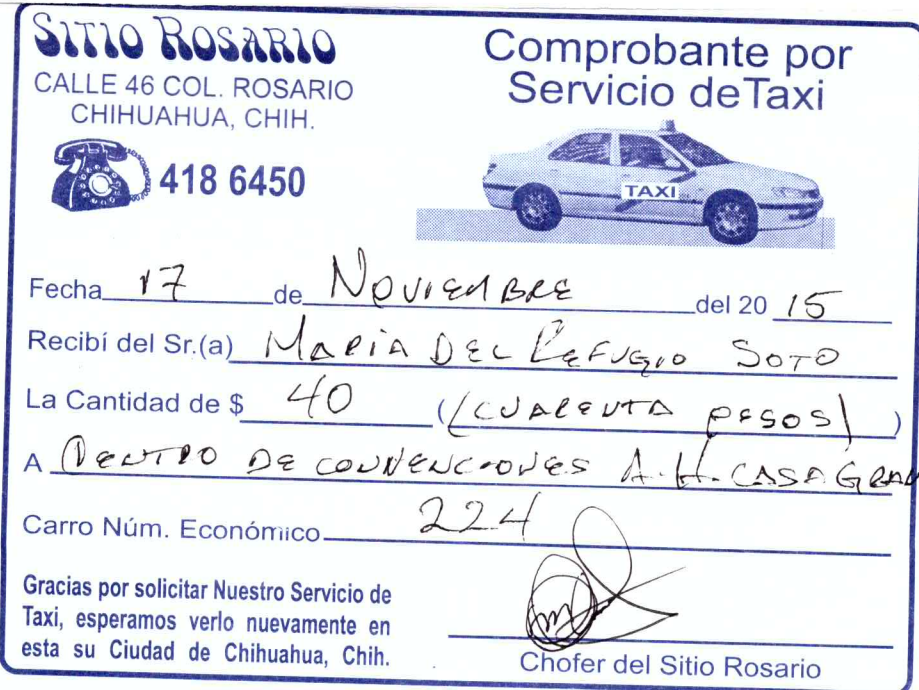 SITIO ROSARIO
CALLE 46 COL. ROSARIO
CHIHUAHUA, CHIH.
418 6450
Comprobante por
Servicio deTaxi
TAXI
Fecha 17 de NOVIEMBRE del 20 15
Recibí del Sr.(a) MARIA DEL REFUGIO SOTO
La Cantidad de $ 40 ((CUARENTA PESOS))
A CENTRO DE CONVENCIONES A. H. CASA GRAN
Carro Núm. Económico 224
Gracias por solicitar Nuestro Servicio de
Taxi, esperamos verlo nuevamente en
esta su Ciudad de Chihuahua, Chih.
Chofer del Sitio Rosario